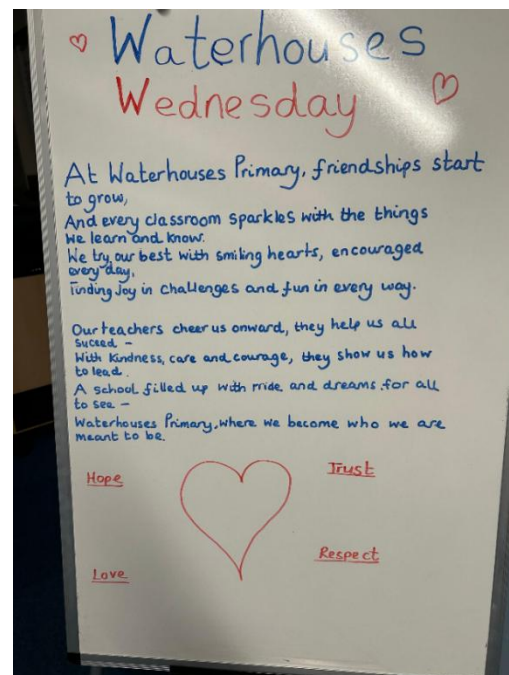 Waterhouses
Wednesday
At Waterhouses Primary, friendships start
to grow,
And every classroom sparkles with the things
we learn and know.
We try our best with smiling hearts, encouraged
every day,
Finding Joy in challenges and fun in every way.
Our teachers cheer us onward, they help us all
succeed -
With Kindness, care and courage, they show us how
to lead.
A school filled up with pride and dreams for all
to see -
Waterhouses Primary, where we become who we are
meant to be.
Hope
Trust
Love
Respect